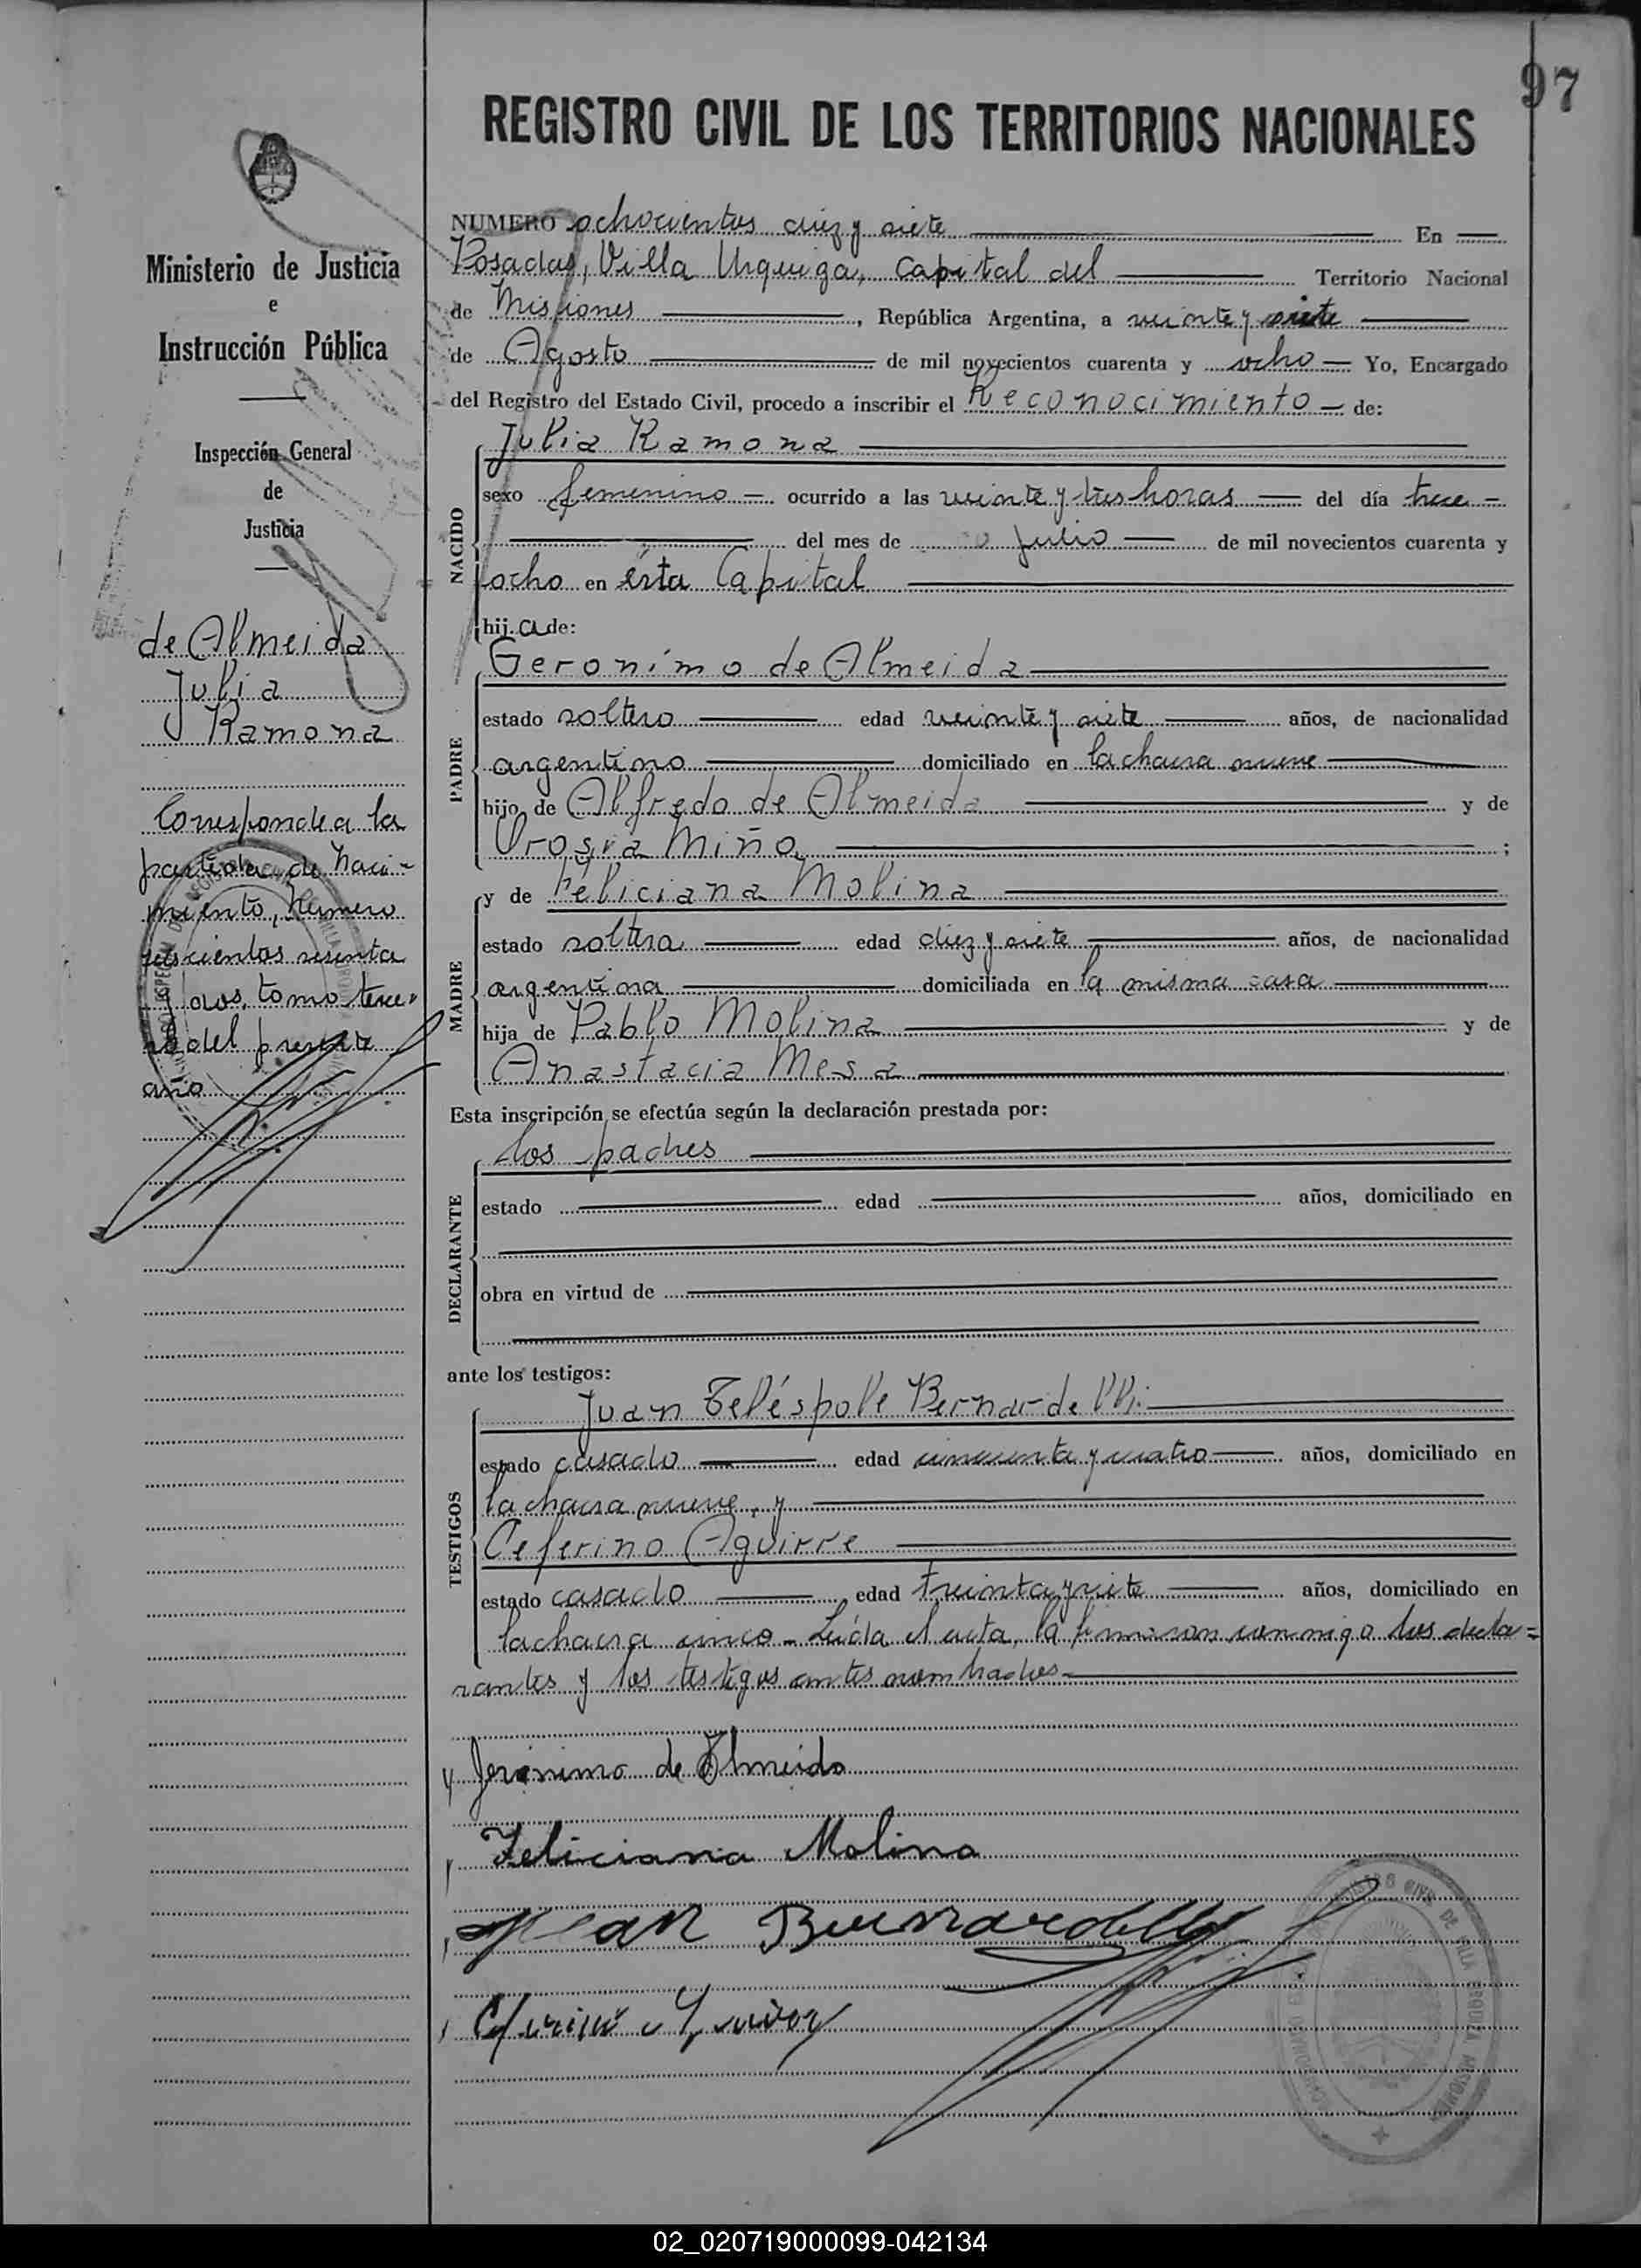 97
REGISTRO CIVIL DE LOS TERRITORIOS NACIONALES
Ministerio de Justicia
e
Instrucción Pública
Inspección General
de
Justicia
de Almeida
Julia
Ramona
Corresponde a la
partida de Naci-
miento, Número
seiscientos sesenta
y dos, tomo terce-
ro del presente
año
NUMERO ochocientos diez y siete En
Posadas, Villa Urquiza, Capital del Territorio Nacional
de Misiones, República Argentina, a veinte y siete
de Agosto de mil novecientos cuarenta y ocho Yo, Encargado
del Registro del Estado Civil, procedo a inscribir el Reconocimiento de:
NACIDO
Julia Ramona
sexo femenino ocurrido a las veinte y tres horas del día trece
del mes de Julio de mil novecientos cuarenta y
ocho en ésta Capital
hija de:
PADRE
Geronimo de Almeida
estado soltero edad veinte y siete años, de nacionalidad
argentino domiciliado en la chacra nueve
hijo de Alfredo de Almeida y de
Miño ;
MADRE
y de Feliciana Molina
estado soltera edad diez y siete años, de nacionalidad
argentina domiciliada en la misma casa
hija de Pablo Molina y de
Anastacia Mesa
Esta inscripción se efectúa según la declaración prestada por:
DECLARANTE
los padres
estado edad años, domiciliado en
obra en virtud de
ante los testigos:
TESTIGOS
Juan Bernardelli
estado casado edad cincuenta y cuatro años, domiciliado en
la chacra nueve, y
Ceferino Aguirre
estado casado edad treinta y siete años, domiciliado en
la chacra cinco - Leída el acta, la firmaron conmigo los decla=
rantes y los testigos antes nombrados
Jerónimo de Almeida
Feliciana Molina
Juan Bernardelly
02_020719000099-042134